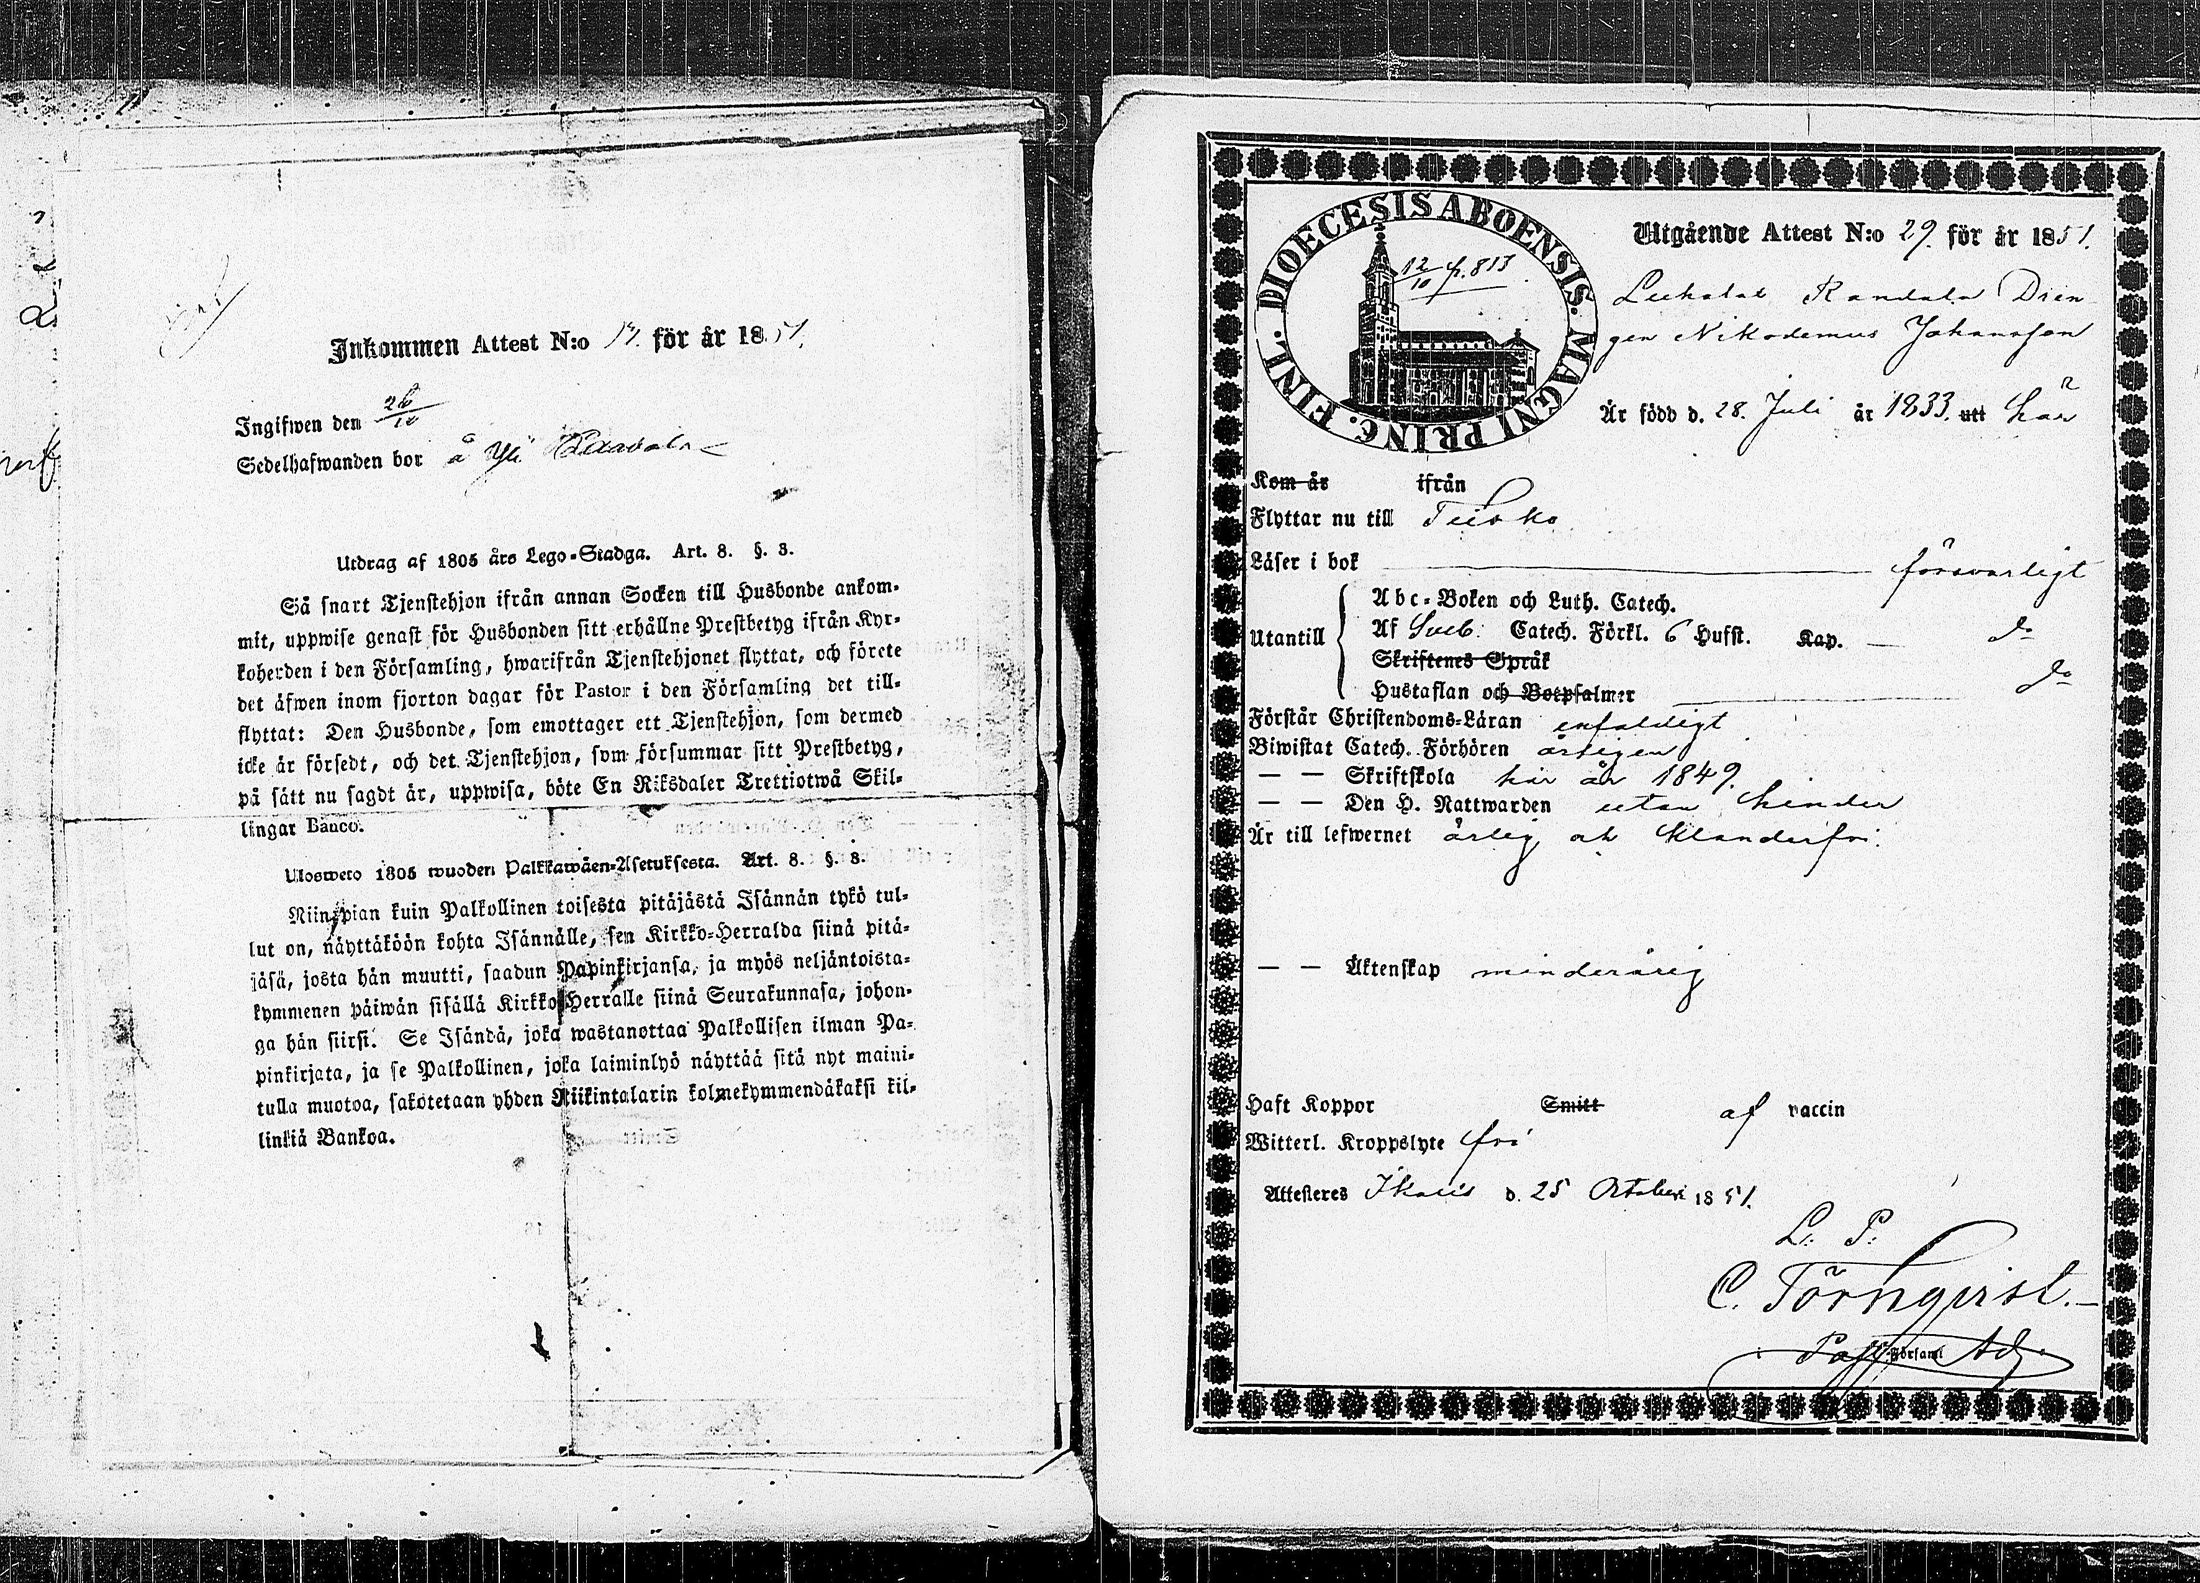 Inkommen Attest N:o för år 1851.
Ingifwen den 26/10
Sedelhafwanden bor å Yli
Utdrag af 1805 års Lego-Stadga. Art. 8. §. 3.
Så snart Tjenstehjon ifrån annan Socken till Husbonde ankom-
mit, uppwise genast för Husbonden sitt erhållne Prestbetyg ifrån Kyr-
koherden i den Församling, hwarifrån Tjenstehjonet flyttat, och förete
det äfwen inom fjorton dagar för Pastor i den Församling det till-
flyttat: Den Husbonde, som emottager ett Tjenstehjon, som dermed
icke är försedt, och det Tjenstehjon, som försummar sitt Prestbetyg,
på sätt nu sagdt är, uppwisa, böte En Riksdaler Trettiotwå Skil-
lingar Banco.
Ulosweto 1805 wuoden Palkkawäen-Asetuksesta. Art. 8. §. 3.
Niin pian kuin Palkollinen toisesta pitäjästä Isännän tykö tul-
lut on, näyttäköön kohta Isännälle, sen Kirkko-Herralda siinä pitä-
jäsä, josta hän muutti, saadun Papinkirjansa, ja myös neljäntoista-
kymmenen päiwän sisällä Kirkko Herralle siinä Seurakunnasa, johon-
ga hän siirsi. Se Isändä, joka wastanottaa Palkollisen ilman Pa-
pinkirjata, ja se Palkollinen, joka laiminlyö näyttää sitä nyt maini-
tulla muotoa, sakotetaan yhden Riikintalarin kolmekymmendäkaksi kil-
linkiä Bankoa.
DIOECESIS ABOENSIS. MAGNI PRINC. FINL.
12/10 p. 813
Utgående Attest N:o 29. för år 1851.
Randala Dren-
gen Nikodemus Johansson
Är född d. 28. Juli år 1833. utt här
Kom år ifrån
Flyttar nu till
Läser i bok försvarligt
Utantill
Abc-Boken och Luth. Catech.
Af Sveb. Catech. Förkl. 6 Hufst. Kap. — do
Skriftenes Språk
Hustaflan och Botpsalmer do
Förstår Christendoms-Läran enfaldigt
Biwistat Catech. Förhören årligen
— — Skriftskola här år 1849.
— — Den H. Nattwarden utan hinder
Är till lefwernet ärlig och klanderfri.
— — Äktenskap minderårig
Haft Koppor Smitt af vaccin
Witterl. Kroppslyte fri
Attesteras Ikalis d. 25 October 1851.
L. P.
C. Törnqvist.
Past. Församl. Adj.